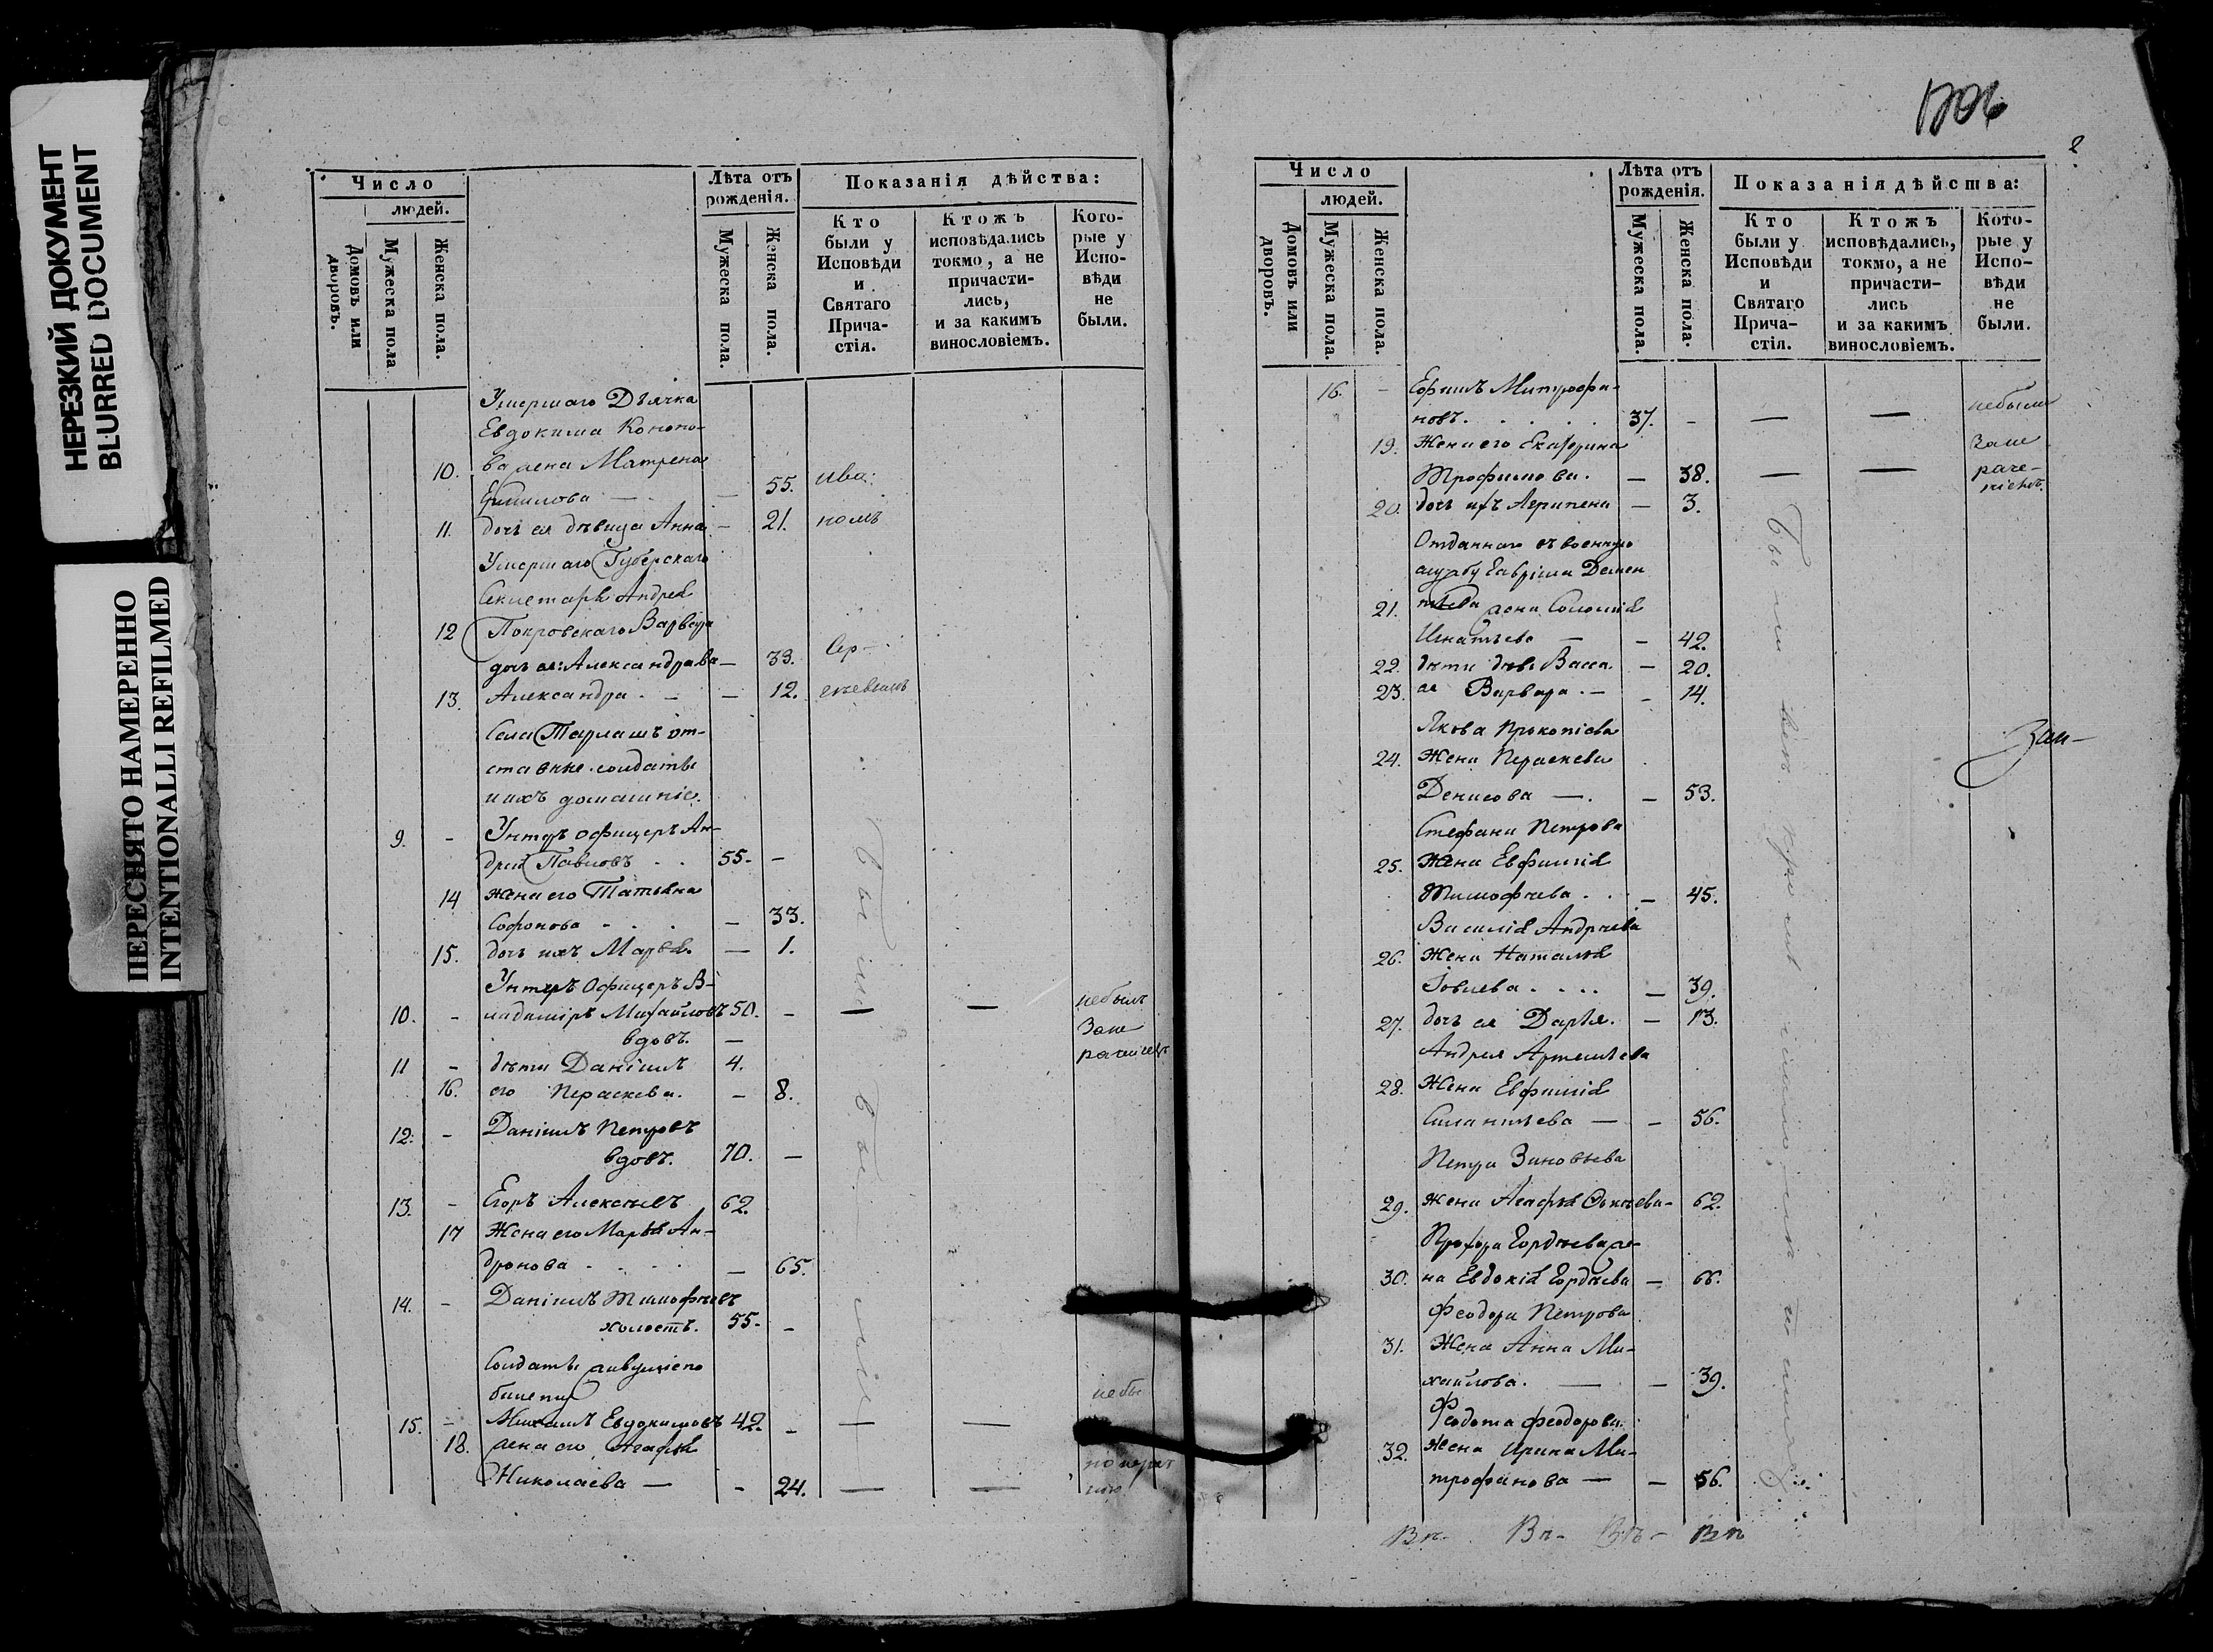 НЕРЕЗКИЙ ДОКУМЕНТ
BLURRED DOCUMENT
ПЕРЕСНЯТО НАМЕРЕННО
INTENTIONALLI REFILMED
Число
людей.
Домовъ или дворовъ.
Мужеска пола
Женска пола.
Лѣта отъ рожденія.
Мужеска пола.
Женска пола.
Показанія дѣйства:
Кто были у Исповѣди и Святаго Прича-стія.
Ктожъ исповѣдались токмо, а не причасти-лись, и за какимъ винословіемъ.
Кото-рые у Испо-вѣди не были.
Умершаго Дьячка
Евдокима Кононо-
10. ва жена Матрена
— — 55.
11. дочь ея дѣвица Анна — 21.
Умершаго Губерскаго
Секретаря Андрея
12 Покровскаго Варвара
Александрова — 33.
13. Александра. — — 12.
Села Тарлашъ от-
ставные солдаты
и ихъ домашніе.
9. - Унтеръ офицеръ Ан-
дрей Павловъ . . 55. -
14 жена его Татьяна
Софонова - . . — 33.
15. дочь ихъ Марья. — 1.
Унтеръ Офицеръ В-
10. - ладиміръ Михайловъ 50. - — — небылъ
вдовъ. — За не
11 - дѣти Даніилъ 4.
16. его Параскева. — 8.
12. - Даніилъ Петровъ
вдовъ. 70. —
13. - Егоръ Алексѣевъ 62.
17 Жена его Марья Ан-
дронова - . . . — 65.
14. - Даніилъ Тимофѣевъ
холостъ. 55. -
Солдаты живущіе по
билету
15. - Михаилъ Евдокимовъ 42. - — —
18. жена его Агафья
Николаева — - 24. — —
Были
Были
1206
2
Число
людей.
Домовъ или дворовъ.
Мужеска пола.
Женска пола.
Лѣта отъ рожденія.
Мужеска пола.
Женска пола.
Показанія дѣйства:
Кто были у Исповѣди и Святаго Прича-стія.
Ктожъ исповѣдались, токмо, а не причасти-лись и за какимъ винословіемъ.
Кото-рые у Испо-вѣди не были.
16. - Ефимъ Митрофа-
новъ. . . . . 37. - — — небыли
19. Жена его Екатерина За не
Трофимова. — 38. — — раче-
20. дочь ихъ Агрипена — 3. ніемъ.
Отданнаго въ военную
службу Гавріила Демен
21. тьева жена Соломія
Игнатьева — — 42.
22. дѣти дѣв. Васса. — 20.
23. ея Варвара. — - 14.
Якова Прокопіева
24. Жена Параскева
Денисова —. — 53.
Стефана Петрова
25. Жена Евфимія
Тимофѣева. . — 45.
Василія Андреева
26. Жена Наталья
Іовлева . . . . — 39.
27. дочь ея Дарья. — 13.
Андрея Артемьева
28. Жена Евфимія
— — 56.
Петра Зиновьева
29. жена Агафья — 62.
Прохора Гордѣева же-
30. на Евдокія Гордѣева — 66.
Феодора Петрова
31. Жена Анна Ми-
хайлова. — — 39.
Федота Феодорова
32. Жена Ирина Ми-
трофанова — — 56.
Были
Зап-